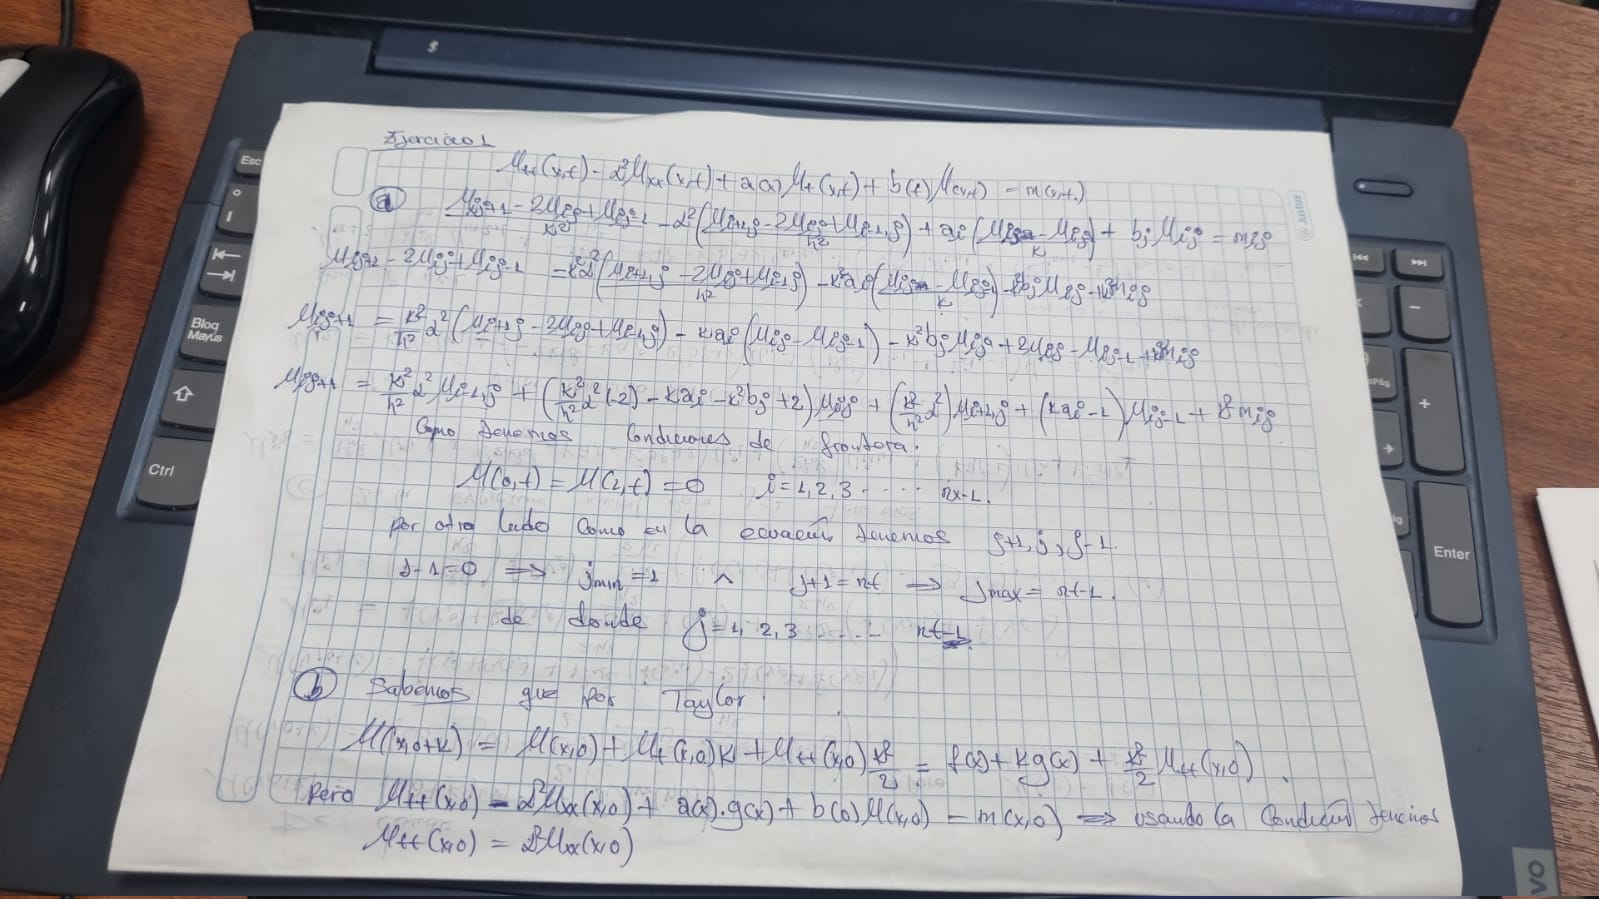 Ejercicio 1
Mtt(x,t) - α²Mxx(x,t) + a(x)Mt(x,t) + b(t)M(x,t) = m(x,t).
a) (Mij+1 - 2Mij + Mij-1)/k² - α²(Mi+1,j - 2Mij + Mi-1,j)/h² + ai(Mij - Mij)/k + bjMij = mij
Mij+1 - 2Mij + Mij-1 - k²α²(Mi+1,j - 2Mij + Mi-1,j)/h² - k²ai(Mij - Mij)/k - k²bjMij + k²mij
Mij+1 = k²/h² α²(Mi+1,j - 2Mij + Mi-1,j) - kai(Mij - Mij-1) - k²bjMij + 2Mij - Mij-1 + k²mij
Mij+1 = k²/h² α²Mi-1,j + (k²/h² α²(-2) - kai - k²bj + 2)Mij + (k²/h² α²)Mi+1,j + (kai - 1)Mij-1 + k²mij
Como tenemos condiciones de frontera.
M(0,t) = M(1,t) = 0 i = 1, 2, 3 ..... nx-1.
por otro lado como en la ecuación tenemos j+1, j, j-1.
j-1=0 ⟹ jmin = 1 ∧ j+1 = nt ⟹ jmax = nt-1.
de donde j = 1, 2, 3 ..... nt-1
b) Sabemos que por Taylor.
M(x,0+k) = M(x,0) + Mt(x,0)k + Mtt(x,0) k²/2 = f(x) + kg(x) + k²/2 Mtt(x,0).
Pero Mtt(x,0) - α²Mxx(x,0) + a(x).g(x) + b(0)M(x,0) = m(x,0) ⟹ usando la condición tenemos
Mtt(x,0) = α²Mxx(x,0)
Esc
Bloq
Mayús
Ctrl
Enter
Justus
VO